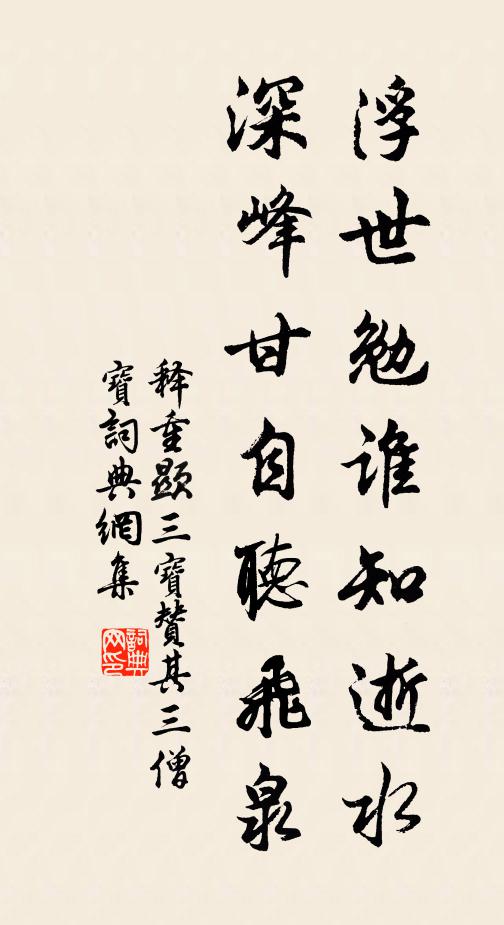 浮世勉誰知逝水
深峰甘自聽飛泉
释重顯三寶贊其三僧
寶詞典網集
詞典网印